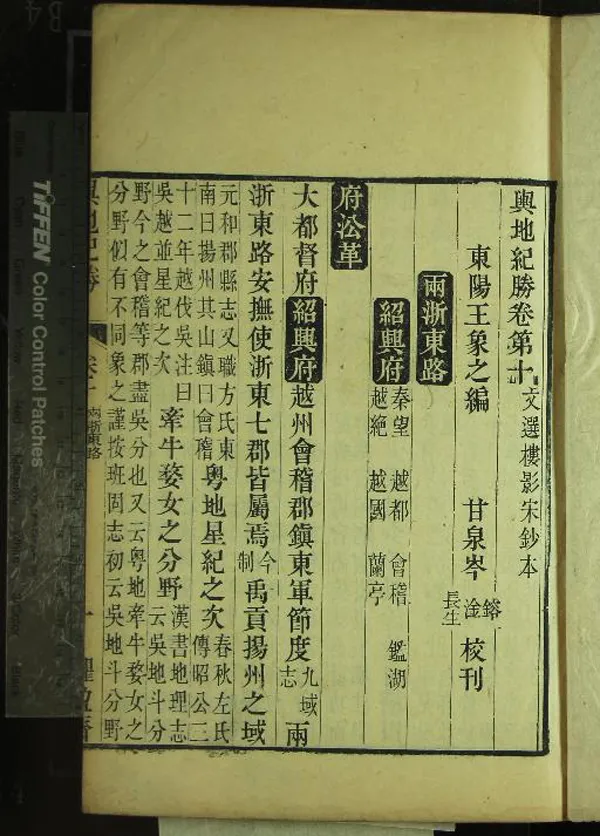 輿地紀勝卷第十 文選樓影宋鈔本
東陽王象之編 甘泉岑 鎔淦長生 校刊
兩浙東路
紹興府 秦望 越都 會稽 鑑湖
越絶 越國 蘭亭
府沿革
大都督府紹興府越州會稽郡鎮東軍節度九域志兩
浙東路安撫使浙東七郡皆屬焉今制禹貢揚州之域
元和郡縣志又職方氏東南曰揚州其山鎮曰會稽粵地星紀之次春秋左氏傳昭公三
十二年越伐吳注曰吳越並星紀之次牽牛婺女之分野漢書地理志云吳地斗分
野今之會稽等郡盡吳分也又云粵地牽牛婺女之
分野似有不同象之謹按班固志初云吳地斗分野
輿地紀勝 卷十 兩浙東路 一
TIFFEN Color Control Patches
B4